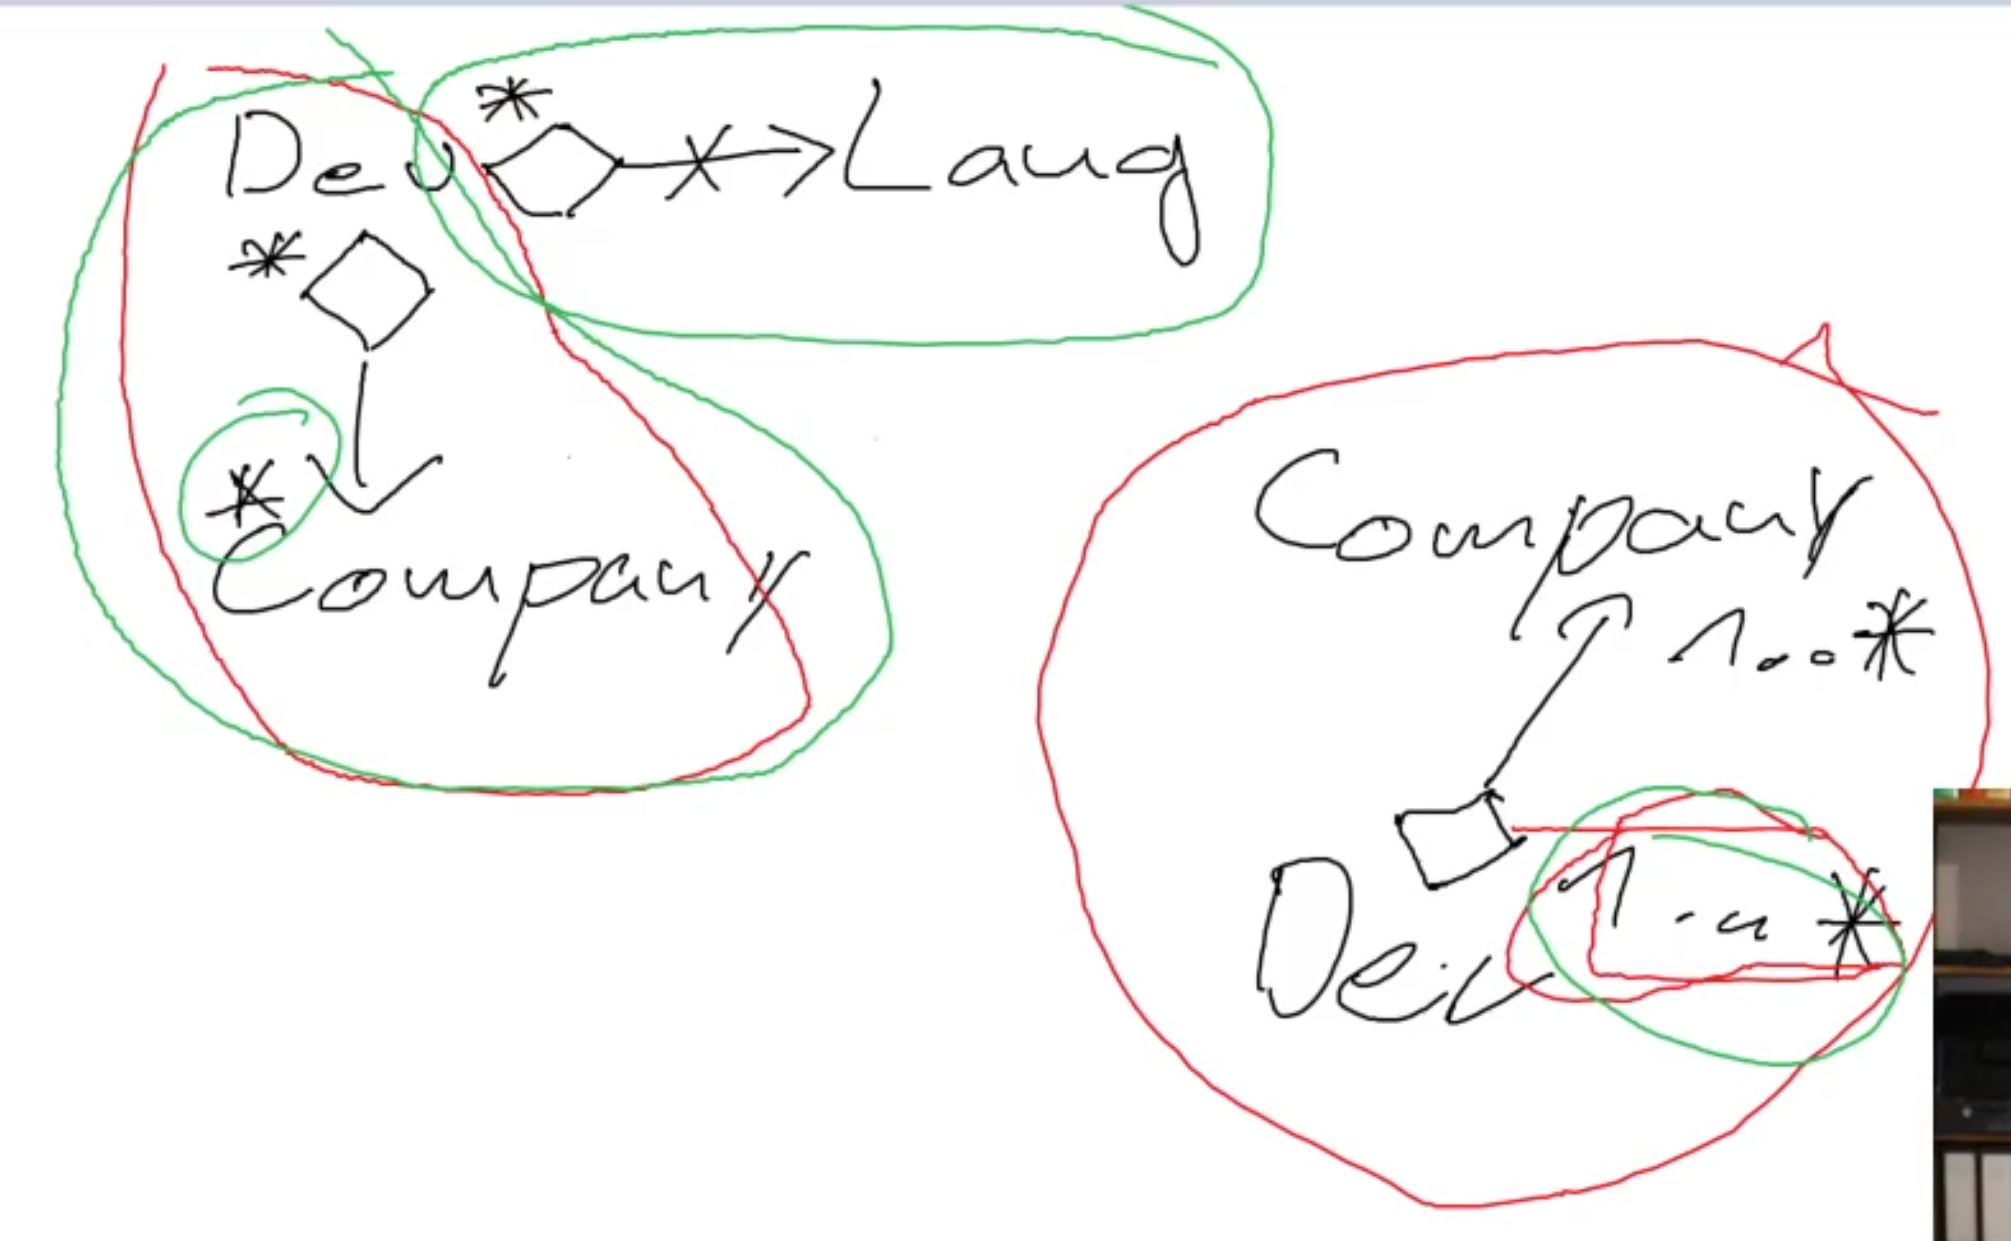 *
Dev Lang
*
*
Company
Company
1..*
1..*
Dev